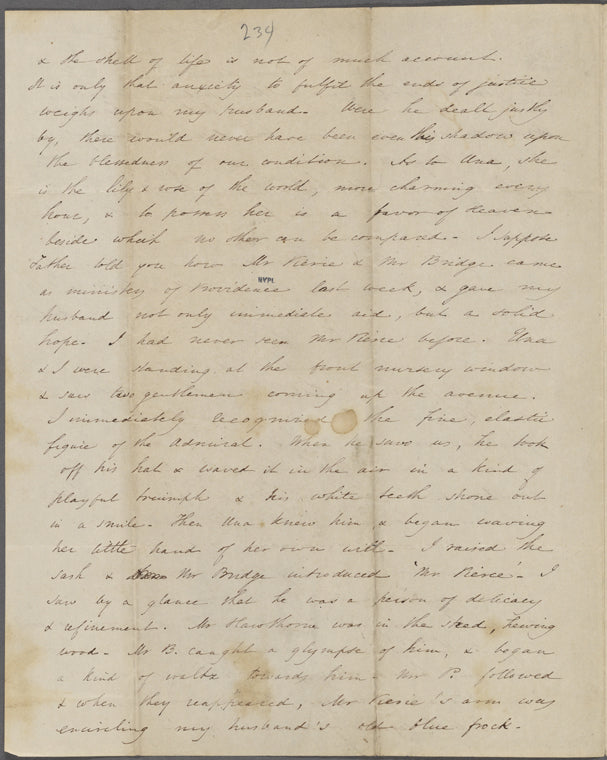 234
& the shell of life is not of much account.
It is only that anxiety to fulfil the ends of justice
weighs upon my husband. Were he dealt justly
by, there would never have been even this shadow upon
the blessedness of our condition. As to Una, she
is the lily & rose of the world, more charming every
hour, & to possess her is a favor of Heaven
beside which no other can be compared. I suppose
Father told you how Mr Pierce & Mr Bridge came
NYPL
as ministers of Providence last week, & gave my
husband not only immediate aid, but a solid
hope. I had never seen Mr Pierce before. Una
& I were standing at the front nursery window
& saw two gentlemen coming up the avenue.
I immediately recognised the fine, elastic
figure of the Admiral. When he saw us, he took
off his hat & waved it in the air in a kind of
playful triumph & his white teeth shone out
in a smile. Then Una knew him & began waving
her little hand of her own will. I raised the
sash & Mr Bridge introduced "Mr Pierce". I
saw by a glance that he was a person of delicacy
& refinement. Mr Hawthorne was in the shed, hewing
wood. Mr B. caught a glympse of him, & began
a kind of waltz towards him. Mr P. followed
& when they reappeared, Mr Pierce's arm was
encircling my husband's old blue frock.